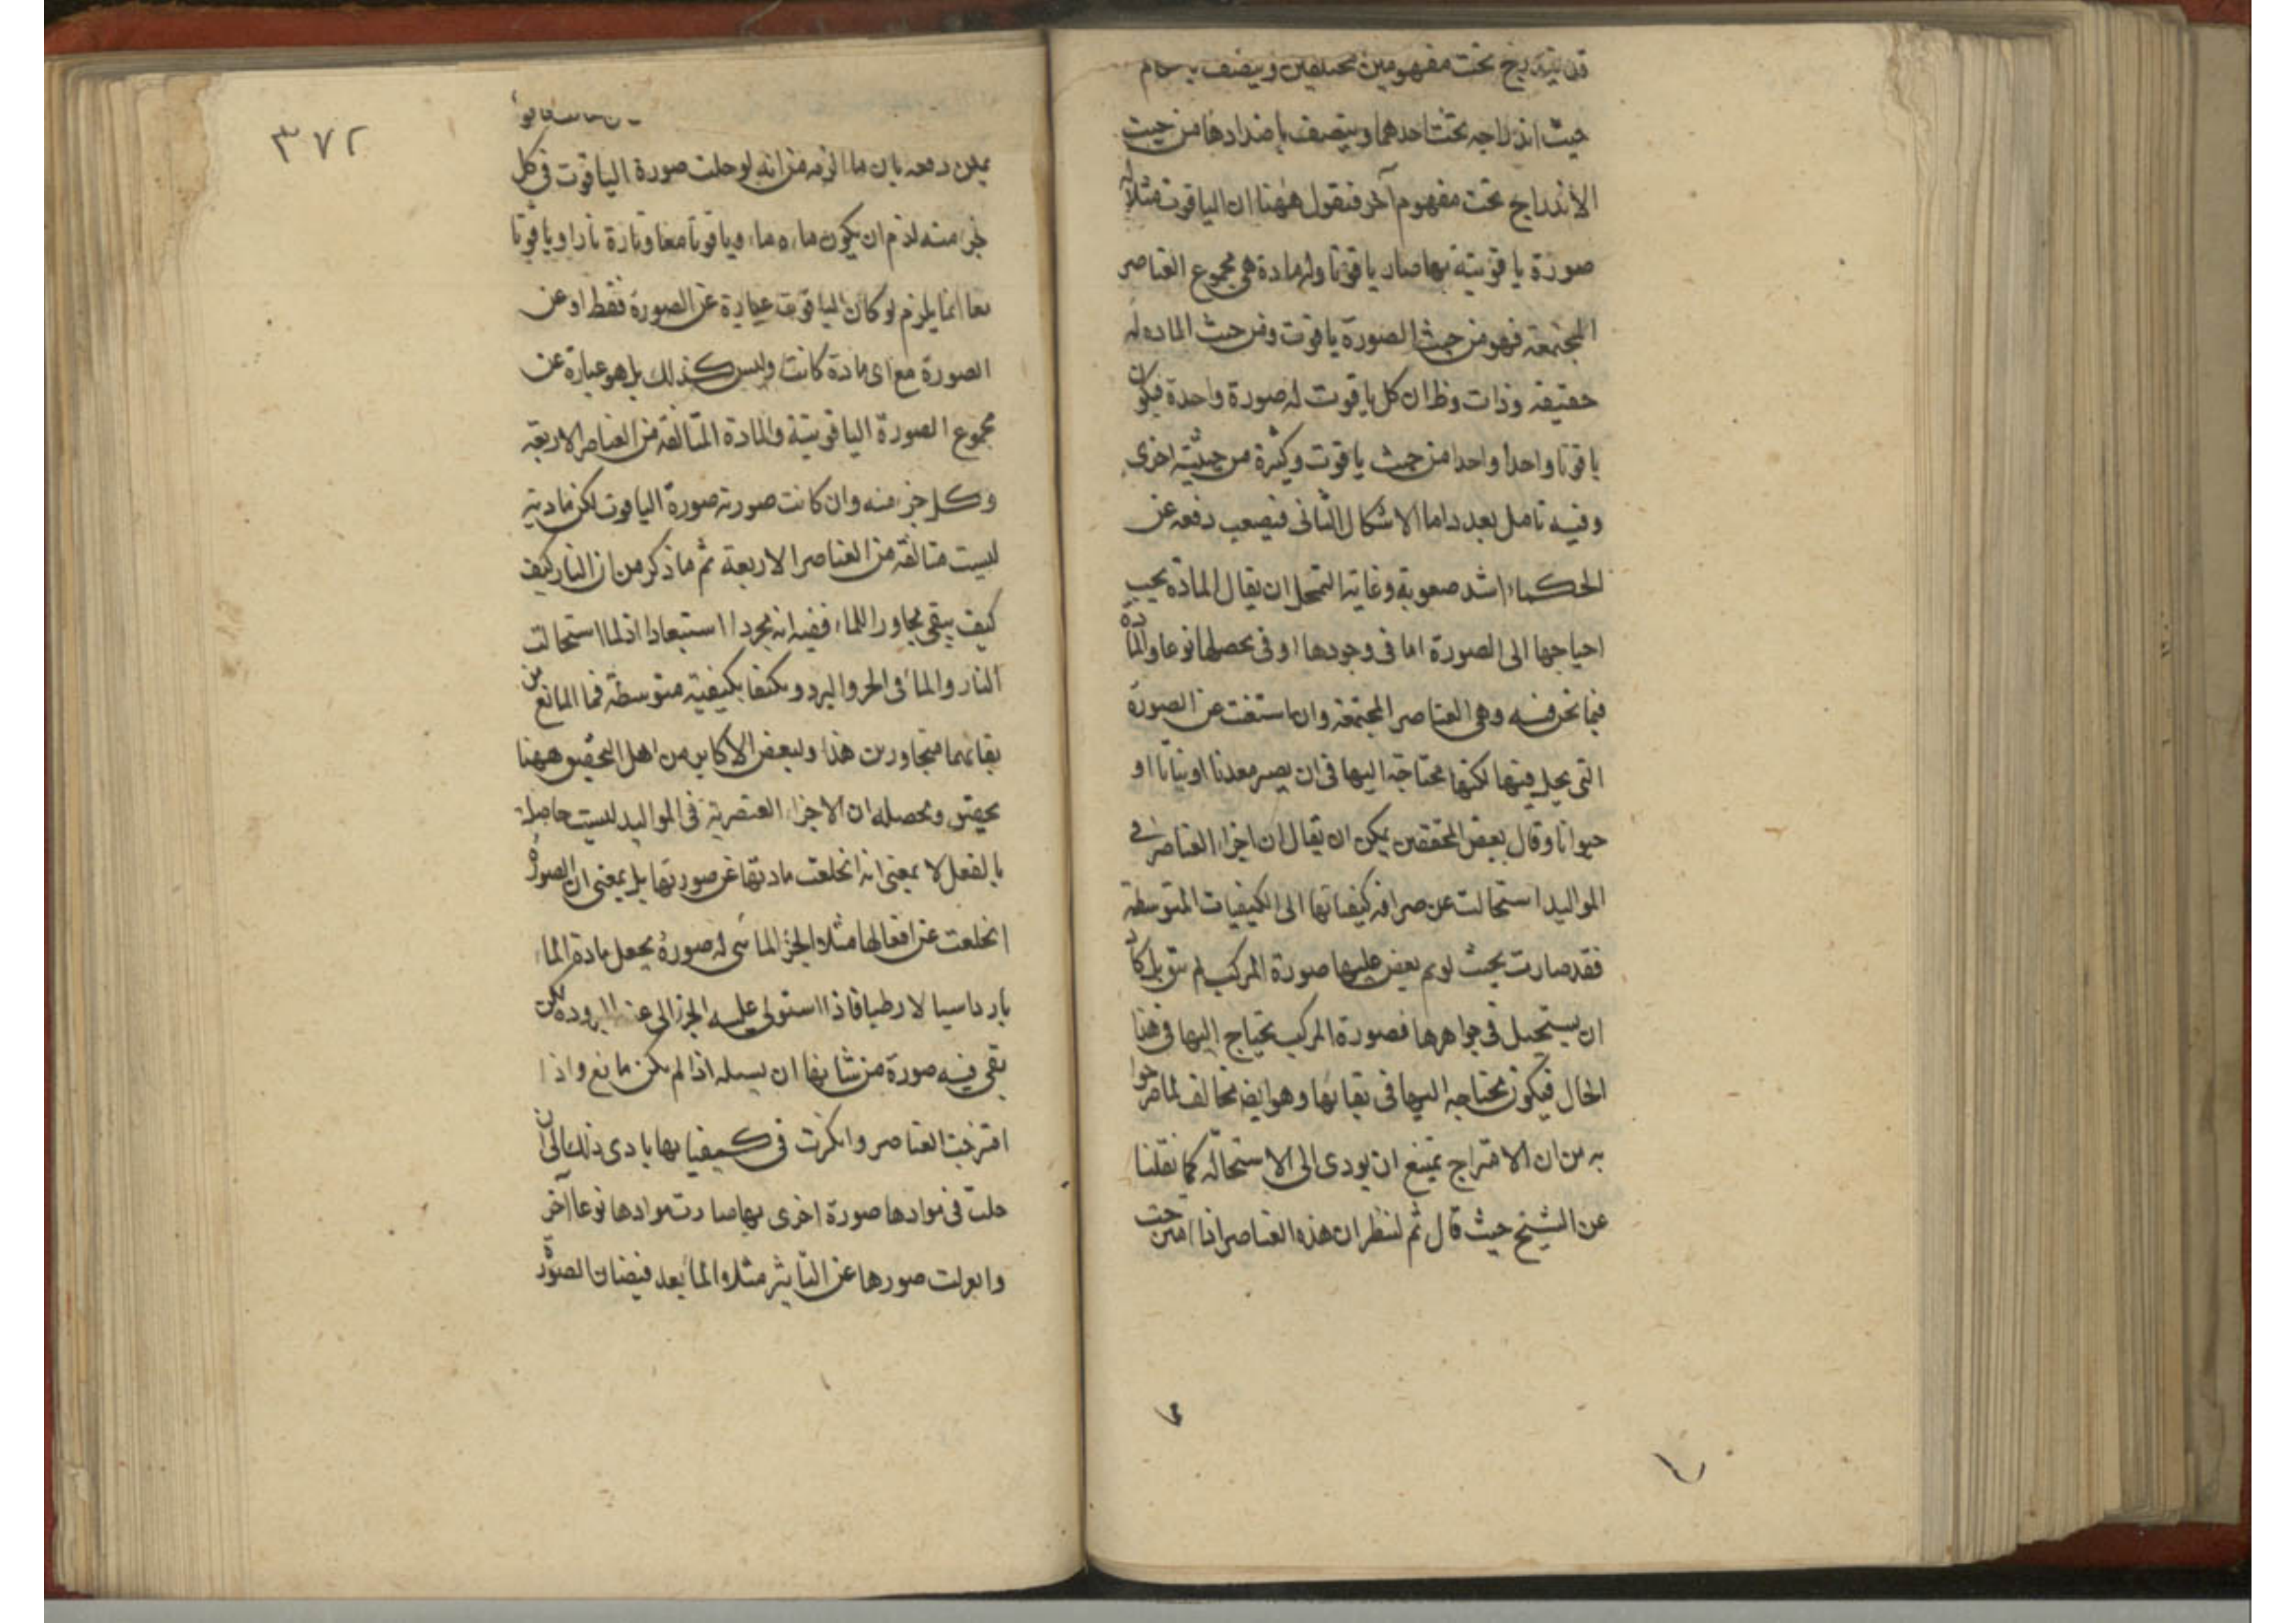 قد يندرج تحت مفهومين مختلفين ويتصف
حيث اندراجه تحت احدهما ويتصف باضدادها من حيث
الاندراج تحت مفهوم آخر فنقول ههنا ان الياقوت مثلا له
صورة ياقوتية بها صار ياقوتا وله مادة هي مجموع العناصر
المجتمعة فهو من حيث الصورة ياقوت ومن حيث المادة له
حقيقة وذات وظ ان كل ياقوت له صورة واحدة فيكون
ياقوتا واحدا واحدا من حيث ياقوت وكثرة من حيثية اخرى
وفيه تامل بعد واما الاشكال الثانى فيصعب دفعه عن
الحكماء اشد صعوبة وغاية التمحل ان يقال المادة يجب
احياجها الى الصورة اما فى وجودها او فى تحصلها نوعا والمادة
فيما نحن فيه وهى العناصر المجتمعة وان استغنت عن الصورة
التى يحل فيها لكنها محتاجة اليها فى ان يصير معدنا او نباتا او
حيوانا وقال بعض المحققين يمكن ان يقال ان اجزاء العناصر فى
المواليد استحالت عن صرافة كيفياتها الى الكيفيات المتوسطة
فقد صارت بحيث لو لم يفض عليها صورة المركب لم تبق بل كاد
ان يستحيل فى جواهرها فصورة المركب يحتاج اليها فى هذا
الحال فيكون محتاجه اليها فى بقائها وهو ايضا مخالف لما صرحوا
به من ان الامتزاج يمتنع ان يودى الى الاستحالة كما نقلنا
عن الشيخ حيث قال ثم لننظر ان هذه العناصر اذا امتزجت
٣٧٢
يمكن دفعه بان ما الزمه من انه لو حلت صورة الياقوت فى كل
جزء منه لزم ان يكون ماءه ماء وياقوتا معا وناره نارا وياقوتا
معا انما يلزم لو كان الياقوت عبارة عن الصورة فقط او عن
الصورة مع اى مادة كانت وليس كذلك بل هو عبارة عن
مجموع الصورة الياقوتية والمادة المتالفة من العناصر الاربعة
وكل جزء منه وان كانت صورته صورة الياقوت لكن مادته
ليست متالفة من العناصر الاربعة ثم ما ذكر من ان النار كيف
كيف يبقى مجاورا للماء ففيه انه مجرد استبعاد اذ لما استحالت
النار والماء فى الحر والبرد وتكيفا بكيفية متوسطة فما المانع من
بقائهما متجاورين هذا ولبعض الاكابر من اهل التحقيق ههنا
تحقيق ومحصله ان الاجزاء العنصرية فى المواليد ليست حاصلة
بالفعل لا بمعنى انه انخلعت مادتها عن صورتها بل بمعنى ان الصورة
انخلعت عن افعالها مثلا الجزء المائى له صورة يجعل مادة الماء
باردا سيالا رطبا فاذا استولى عليه الجزء الى عنه البرودة لكن
بقى فيه صورة من شانها ان يسيله اذا لم يكن مانع واذا
امتزجت العناصر وانكرت فى كيفياتها يادى ذلك الى ان
حلت فى موادها صورة اخرى بها صارت موادها نوعا آخر
وانعزلت صورها عن التاثير مثلا والماء بعد فيضان الصورة